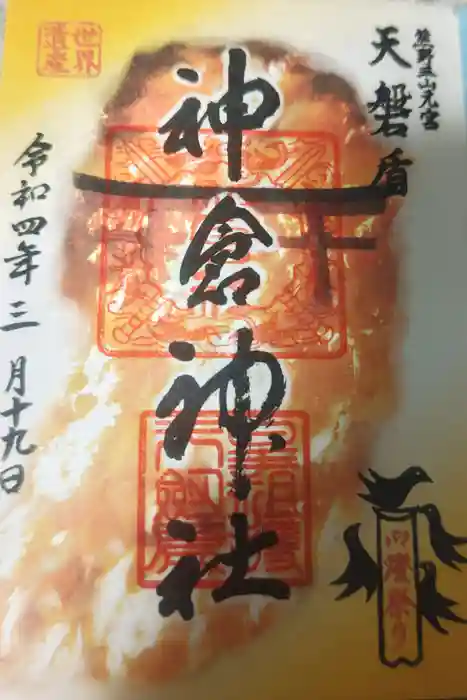 熊野三山元宮
天磐盾
神倉神社
令和四年三月十九日
世界遺産
御燈祭り